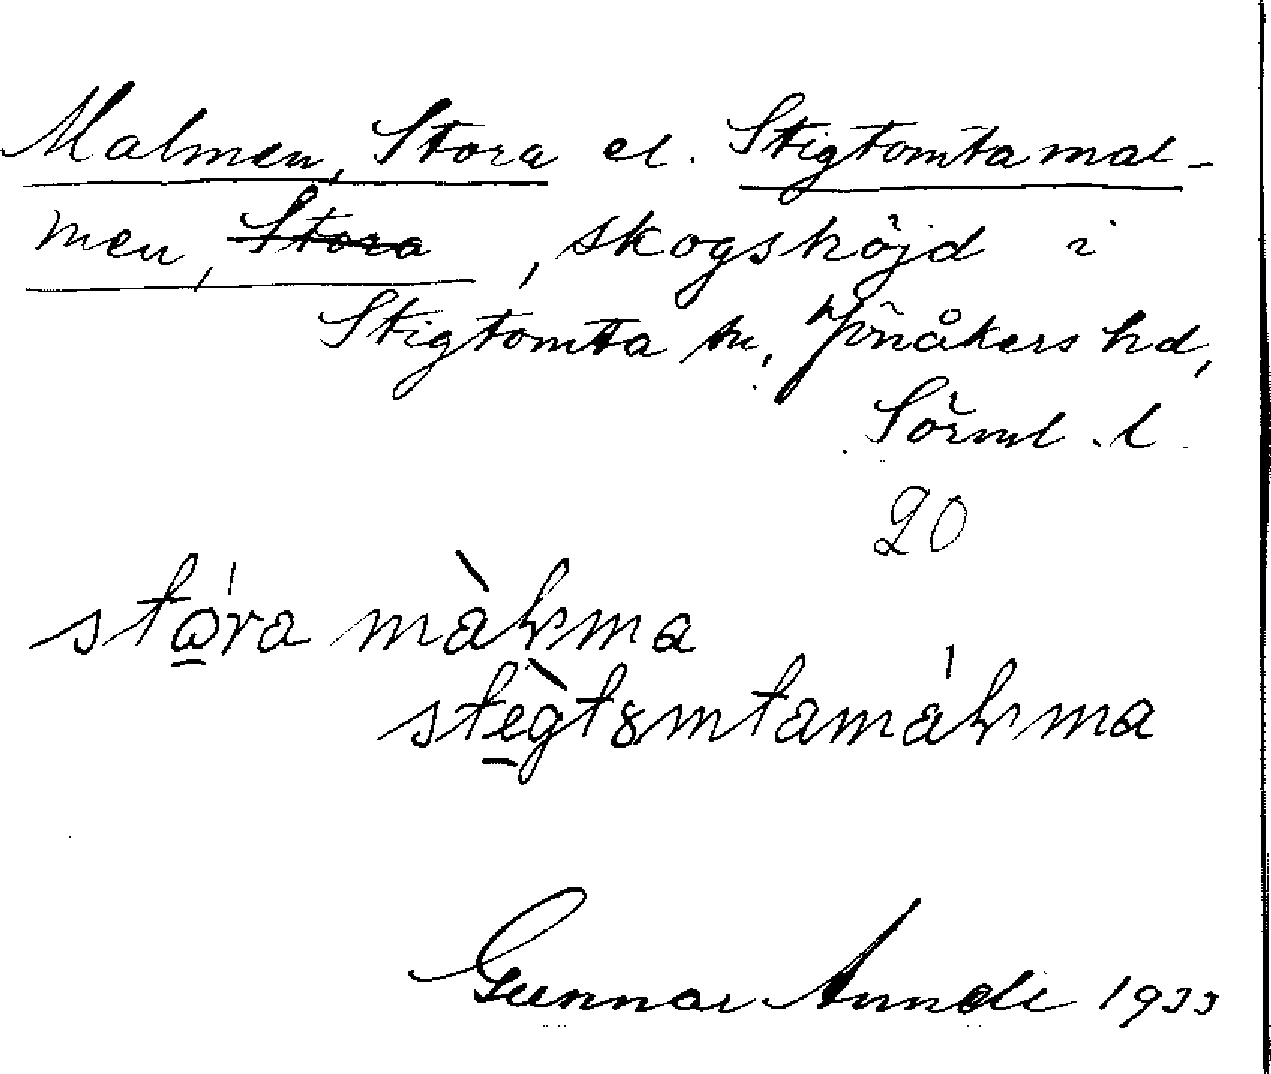 Malmen, Stora el. Stigtomtamal-
men, Stora, skogshöjd i
Stigtomta sn, Jönåkers hd,
Sörml. l.
20
stóra màlma
stègtomtamálma
Gunnar 1933